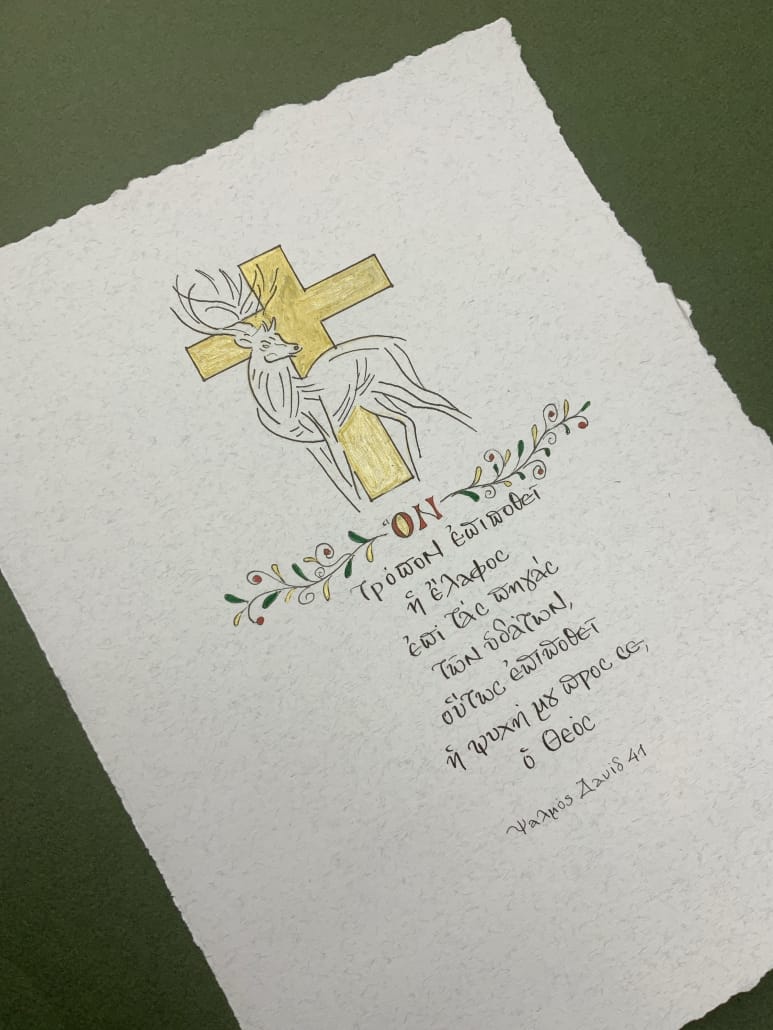 ὋΝ
τρόπον ἐπιποθεῖ
ἡ ἔλαφος
ἐπὶ τὰς πηγάς
τῶν ὑδάτων,
οὕτως ἐπιποθεῖ
ἡ ψυχή μȣ προς σε,
ὁ Θεός
Ψαλμός Δαυίδ 41